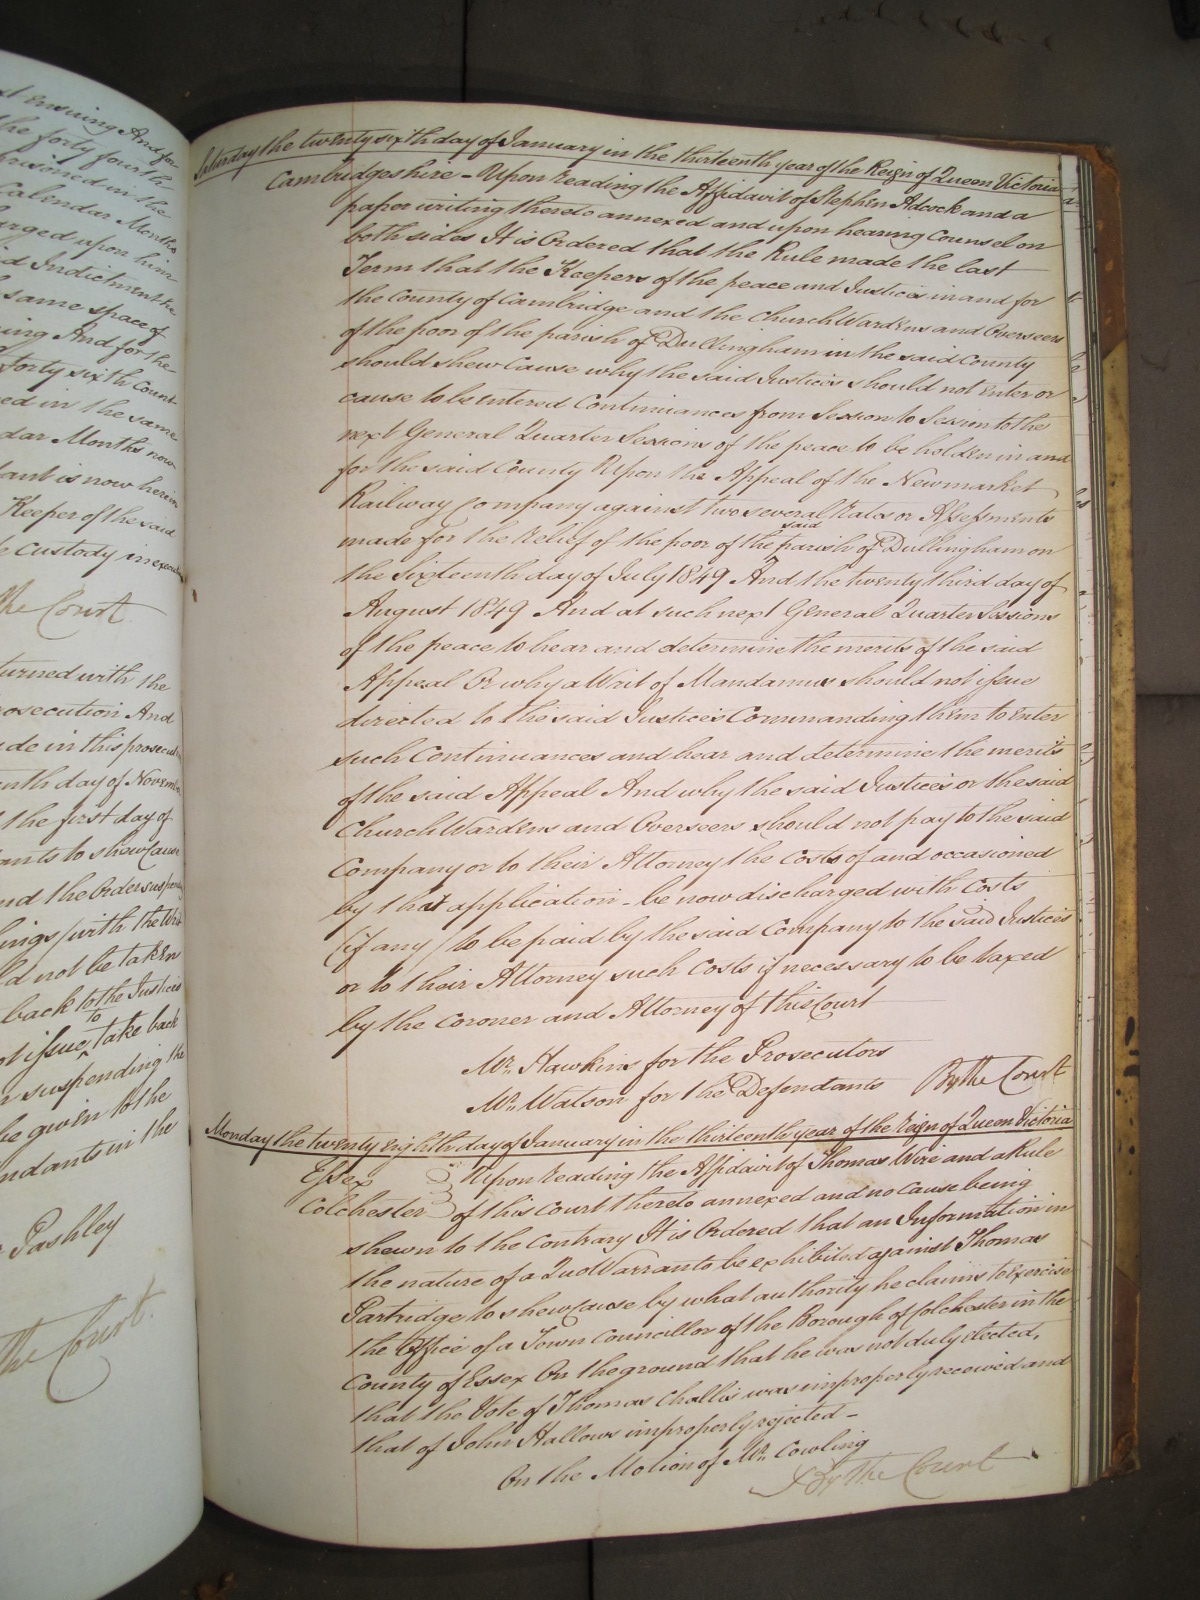 xt ensuing And for
the forty fourth
prisoned in the
Calendar Months
arged upon him
id Indictment the
same space of
ing And for the
forty sixth Count
ed in the same
dar Months now
dant is now herein
Keeper of the said
custody in execution
the Court
turned with the
rosecution And
de in this prosecution
nth day of November
the first day of
ants to shew Cause
nd the Order suspending
ings (with the Writ
d not be taken
back to the Justices
to
ot issue take back
suspending the
be given to the
ndants in the
Pashley
the Court.
Saturday the twenty sixth day of January in the thirteenth year of the Reign of Queen Victoria
Cambridgeshire - Upon reading the Affidavit of Stephen Adcock and a
paper writing thereto annexed and upon hearing Counsel on
both sides It is Ordered that the Rule made the last
Term that the Keepers of the peace and Justices in and for
the County of Cambridge and the Church Wardens and Overseers
of the poor of the parish of Dullingham in the said County
should shew Cause why the said Justices should not enter or
cause to be entered Continuances from Session to Session to the
next General Quarter Sessions of the peace to be holden in and
for the said County Upon the Appeal of the Newmarket
Railway Company against two several Rates or Assessments
made for the relief of the poor of the said parish of Dullingham on
the Sixteenth day of July 1849 And the twenty third day of
August 1849 And at such next General Quarter Sessions
of the peace to hear and determine the merits of the said
Appeal Or why a Writ of Mandamus should not issue
directed to the said Justices Commanding them to enter
such Continuances and hear and determine the merits
of the said Appeal And why the said Justices or the said
Church Wardens and Overseers should not pay to the said
Company or to their Attorney the Costs of and occasioned
by that application - be now discharged with Costs
(if any) to be paid by the said Company to the said Justices
or to their Attorney such Costs if necessary to be taxed
by the Coroner and Attorney of this Court
Mr. Hawkins for the Prosecutors
Mr. Watson for the Defendants By the Court
Monday the twenty eighth day of January in the thirteenth year of the Reign of Queen Victoria
Essex Upon reading the Affidavit of Thomas Wire and a Rule
Colchester of this Court thereto annexed and no Cause being
shewn to the Contrary It is Ordered that an Information in
the nature of a Quo Warranto be exhibited against Thomas
Partridge to shew Cause by what authority he claims to Exercise
the Office of a Town Councillor of the Borough of Colchester in the
County of Essex On the ground that he was not duly elected,
that the Vote of Thomas Challis was improperly received and
that of John Hallows improperly rejected -
On the Motion of Mr. Cowling
By the Court